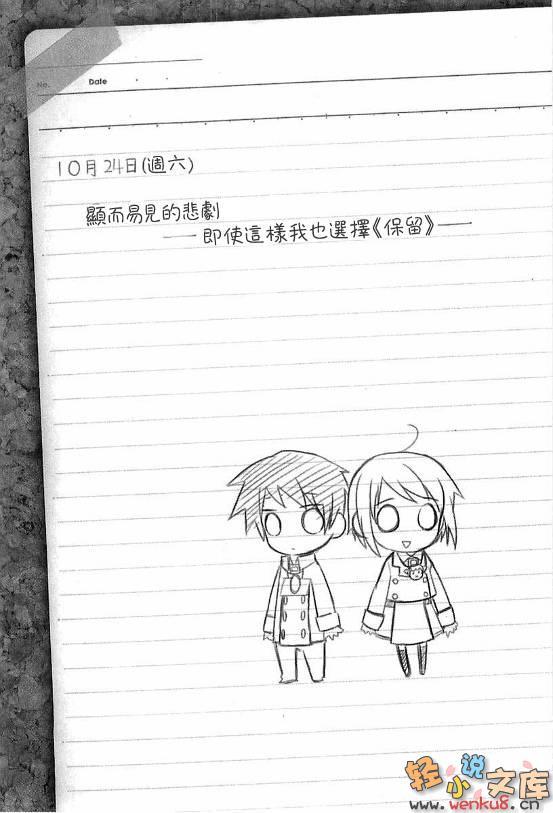 No. Date
10月24日(週六)
顯而易見的悲劇
——即使這樣我也選擇《保留》——
轻小说文库
www.wenku8.cn